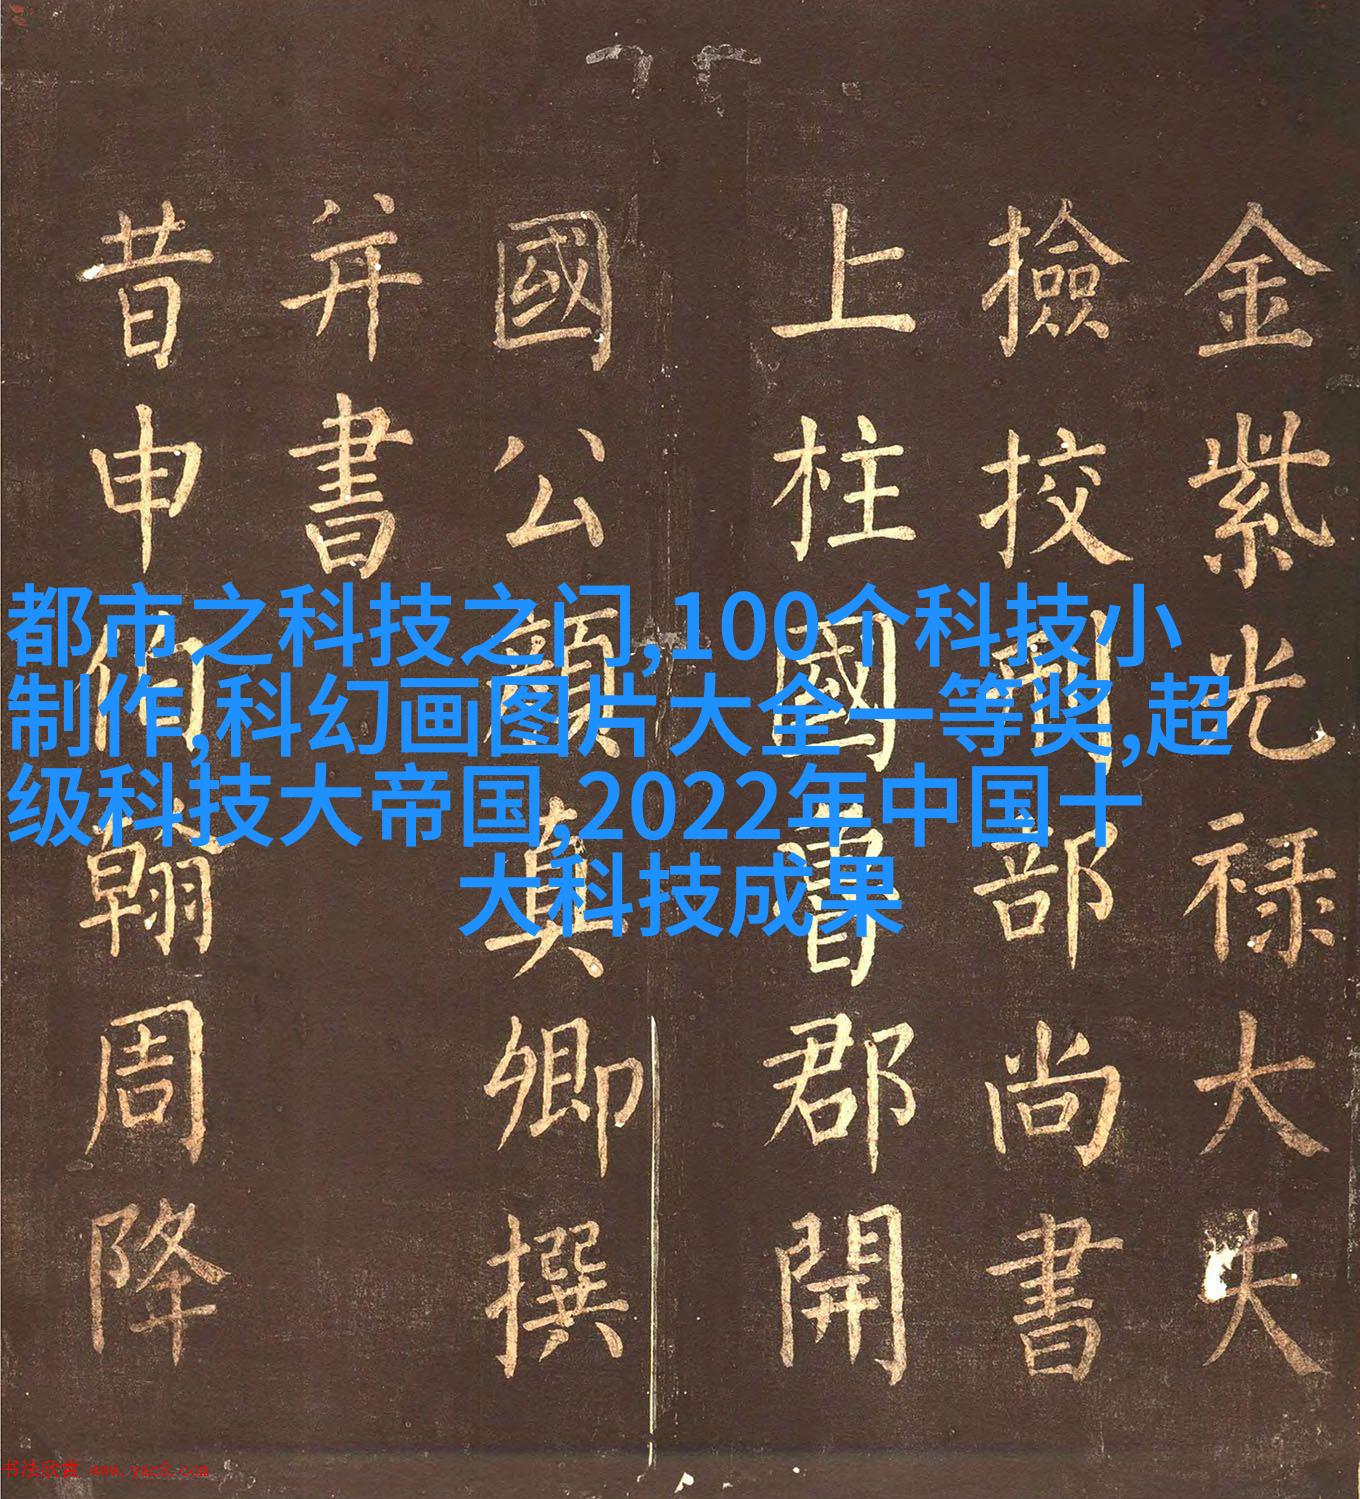 金紫光禄大夫
撿挍刑部尚書
上柱國魯郡開
國公顏真卿撰
并書
昔申伯翰周降
都市之科技之门,100个科技小
制作,科幻画图片大全一等奖,超
级科技大帝国,2022年中国十
大科技成果
书法欣赏 www.yac8.com